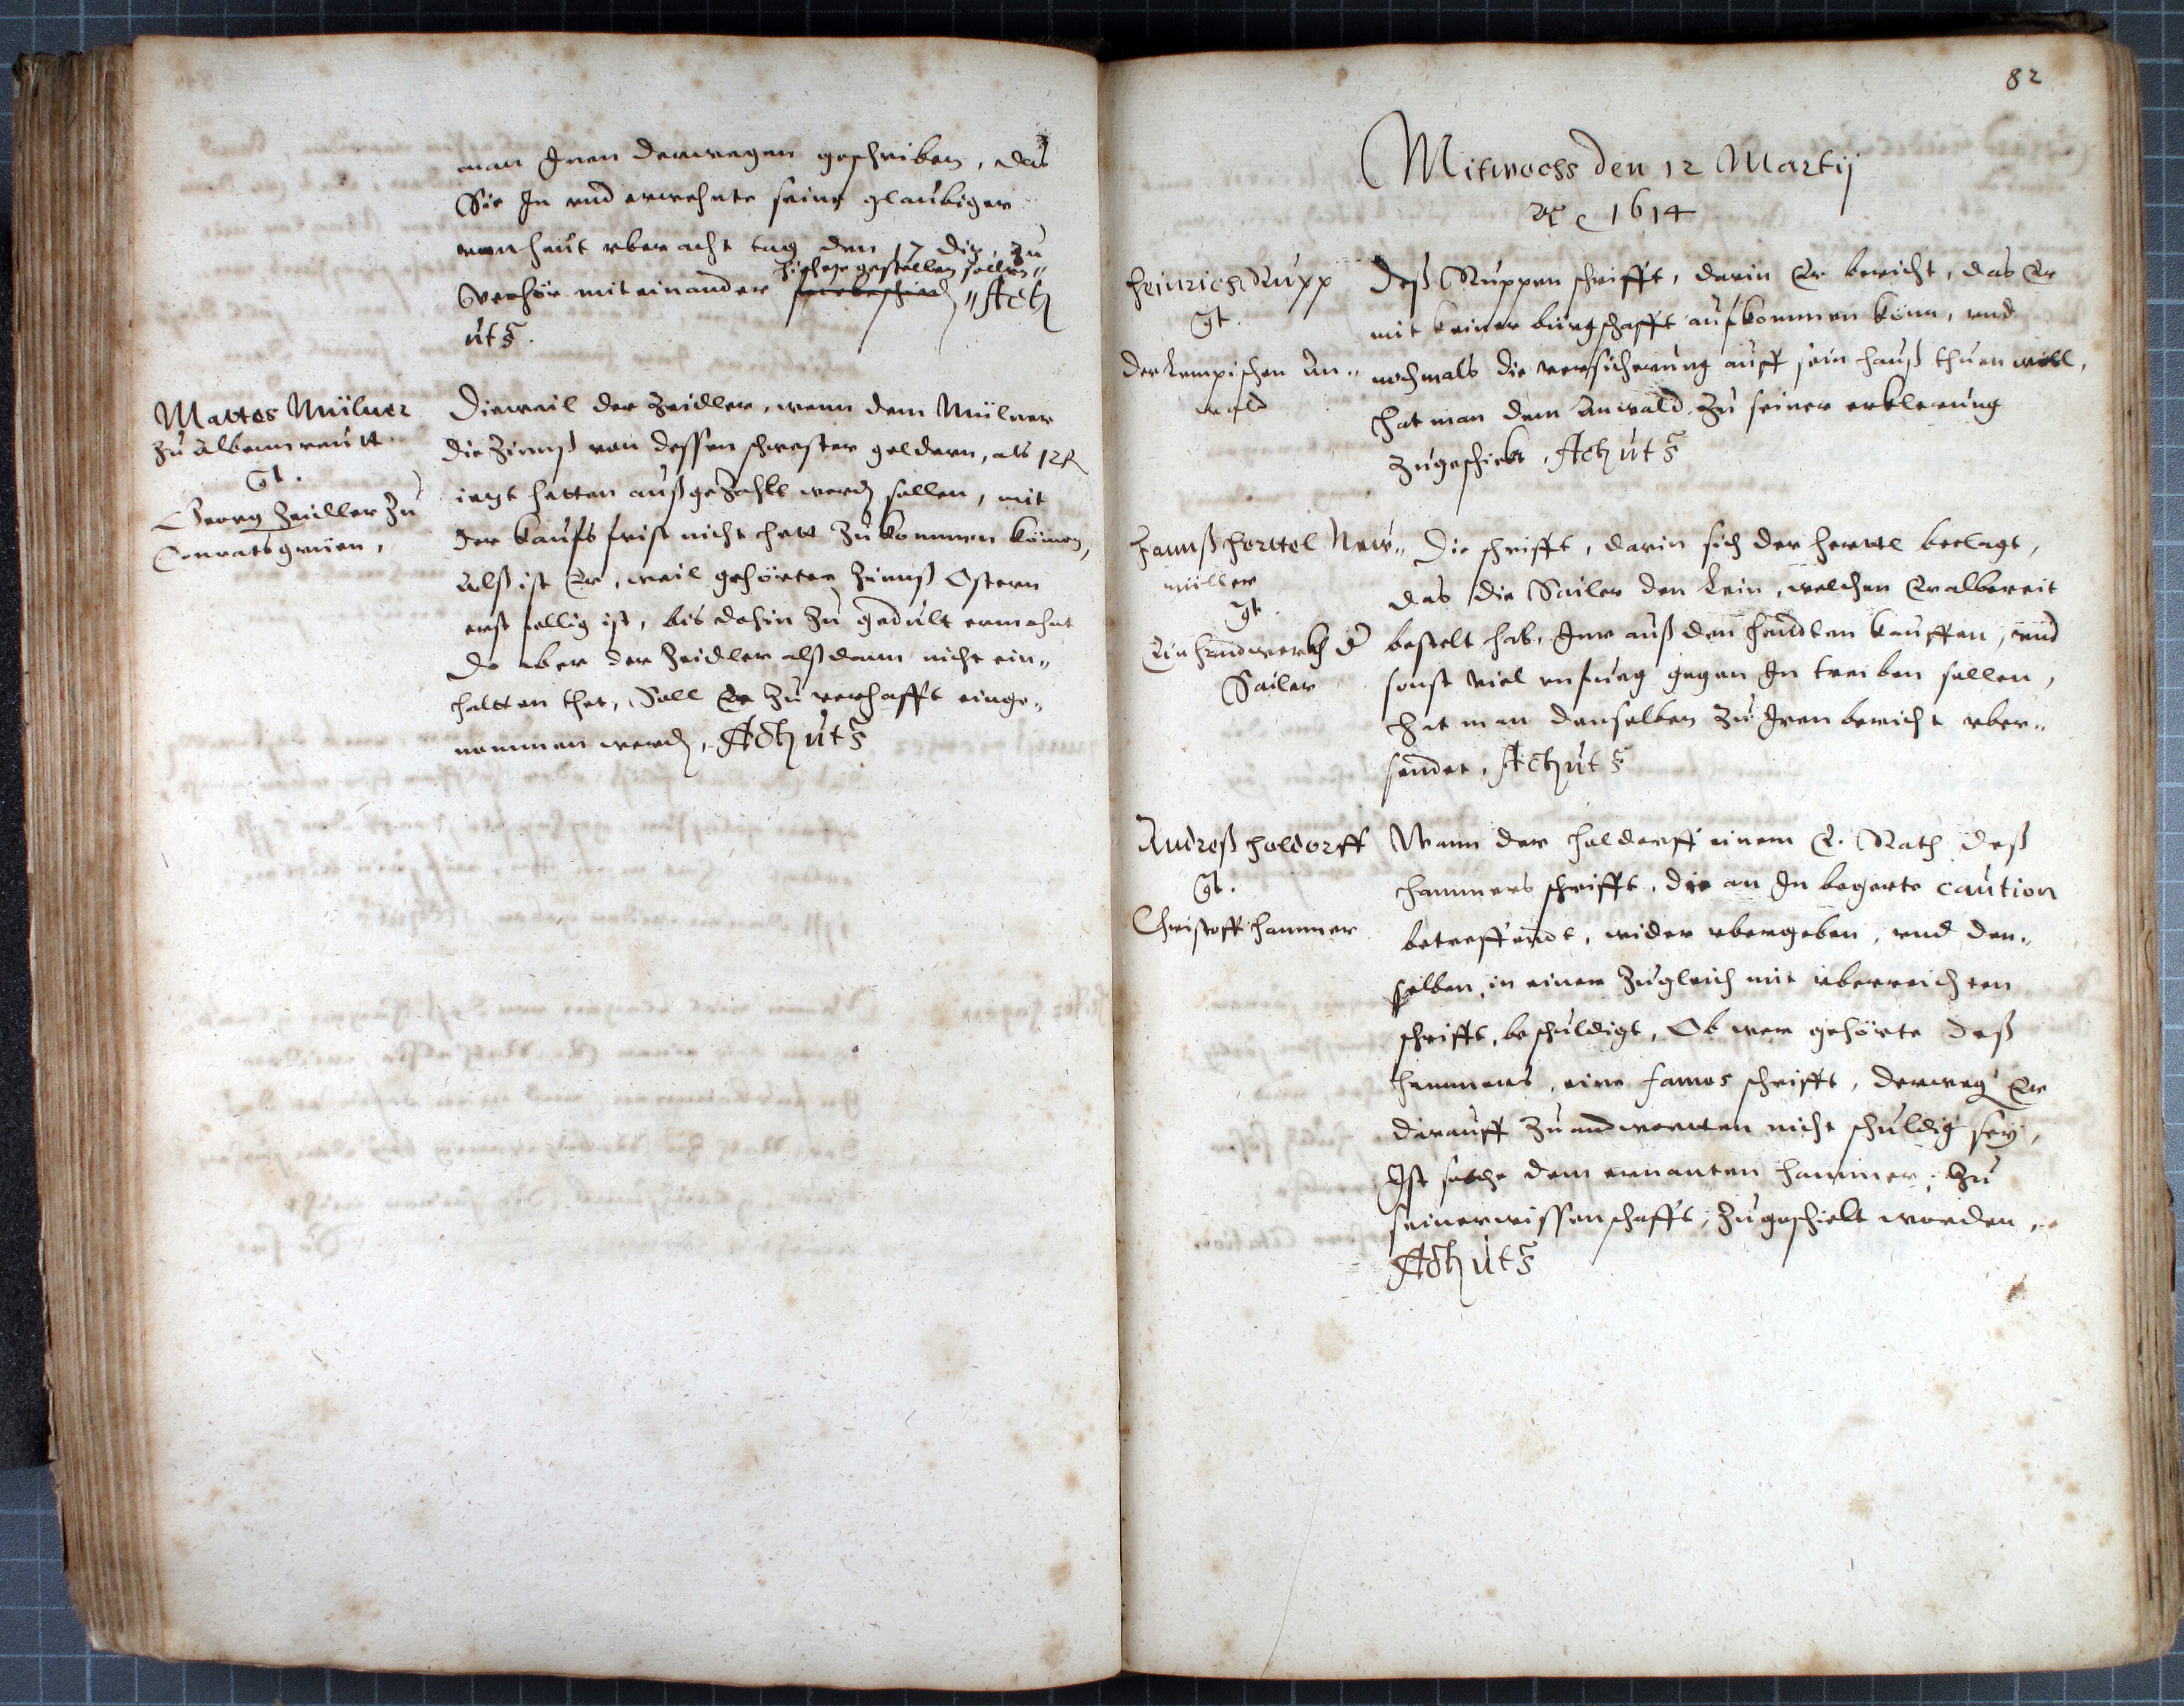 man Inen derwegen geschriben, das
Sie In vnd erwehnte seine glaubiger
von heut vber acht tag den 17 diß, zu
hiehero gestellen sollen
Verhör mit einander Actum
uts.
Mattes Mülner
zu Albernreutt
Gt.
Georg Zeidler zu
Conratsgrüen,
Dieweil der Zeidler, wenn dem Mülner
die Zinnß von dessen schwester geldern, als 12 R
ietzt hetten außgezahlt werden sollen, mit
der kaufs frist nicht hett zukommen können,
Alß ist Er, weil gehörter Zinnß Ostern
erst fellig ist, bis dahin zu gedult ermahnt
Da aber der Zeidler alßdann nicht ein-
haltten thet, Soll Er zu verhafft einge-
nommen werden, Actum uts
82
Mitwochs den 12 Martij
Ao 1614
Heinrich Rupp
Gt.
der Lempischen An-
wald
Deß Ruppen schrifft, darin Er bericht, das Er
mit keiner bürgschafft aufkommen könn, vnd
nochmals die versicherung auff sein hauß thuen woll,
Hat man dem Anwald zu seiner erklerung
zugeschickt, Actum uts
Hannß Hertel New-
müller
Gt.
Ein Handwerckh d
Sailer
Die schrifft, darin sich der Hertel beclagt,
das die Sailer den Lein, welchen Er albereit
bestelt hab, Ime auß den Handten kauffen, vnd
sonst viel vnfueg gegen In treiben sollen,
Hat man denselben zu Iren bericht vber-
sendet, Actum uts
Andreß Holdorff
Gt.
Christoff Hammer
Wann der Holdorff einem E. Rath deß
Hammers schrifft, die an In begerte caution
betreffendt, wider vbergeben, vnd den-
selben, in einer zugleich mit überreichten
schrifft, beschuldigt, Ob wer gehörte deß
Hammers, eine famos schrifft, derweg Er
darauff zu andwortten nicht schuldig sey,
Ist solche dem ernanten Hammer, zu
seiner wissenschafft, zugeschickt worden,
Actum uts